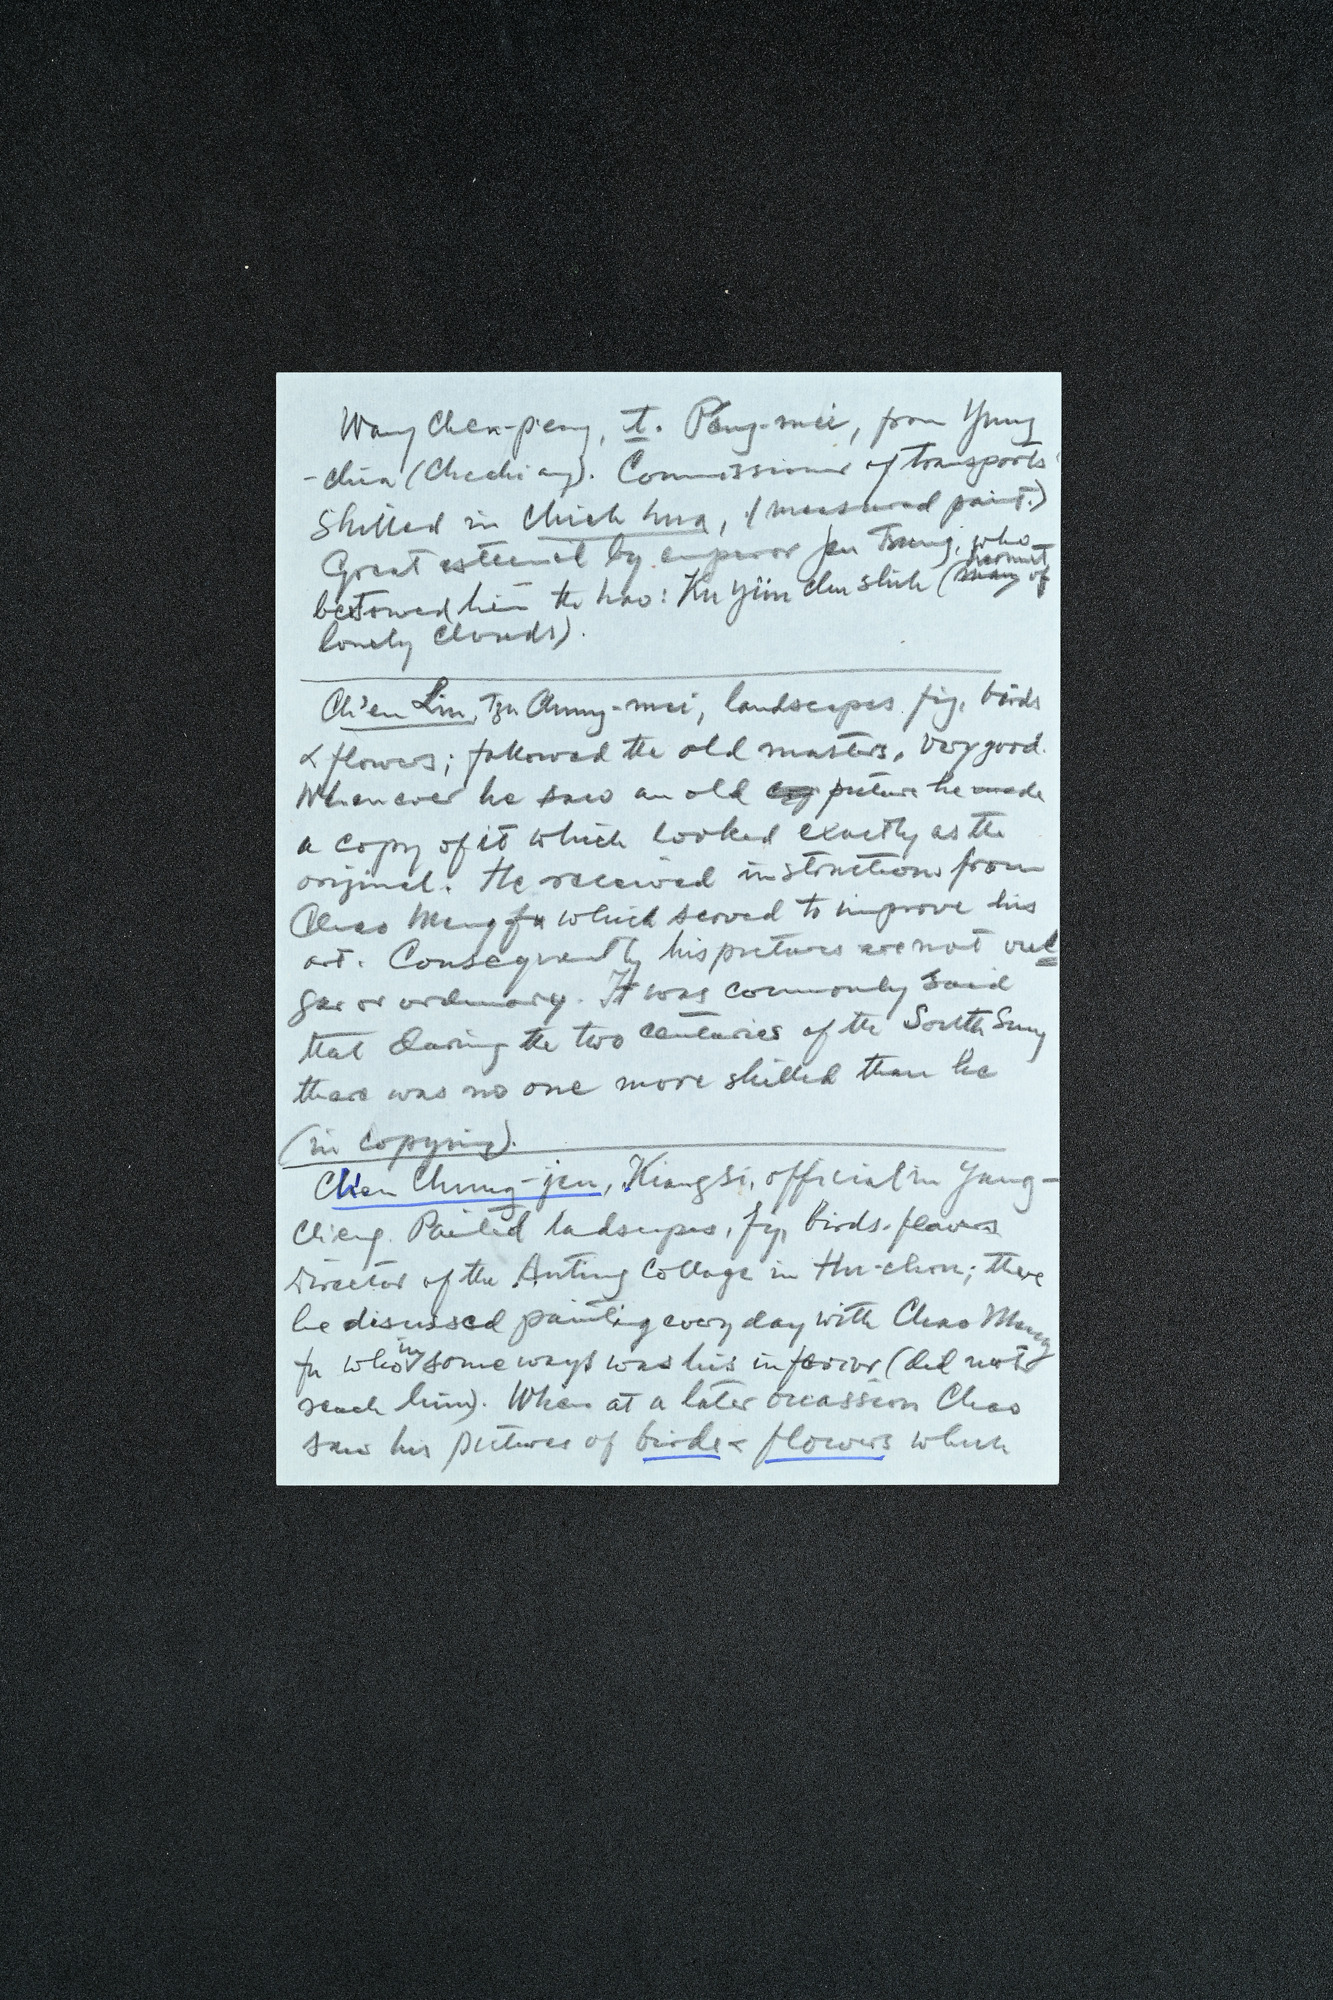 Wang Chen-p'eng, t. P'eng-mei, from Yung
-chia (Chechiang). Commissioner of transports
Skilled in Chieh hua, (measured paint.)
Great esteemed by emperor Jen Tsung, who
bestowed him the hao: Ku yün chu shih (hermit of
lonely clouds).
Ch'en Lin, Tzu Chung-mei, landscapes fig, birds
& flowers; followed the old masters, very good.
Whenever he saw an old picture he made
a copy of it which looked exactly as the
original. He received instructions from
Chao Meng fu which served to improve his
art. Consequently his pictures are not vul
gar or ordinary. It was commonly said
that during the two centuries of the South Sung
there was no one more skilled than he
(in copying).
Ch'en Chung-jen, Kiangsi, official in Yang-
ch'eng. Painted landscapes, fig, birds-flowers
Director of the Anting College in Hu-chou; there
he discussed painting every day with Chao Meng
fu who in some ways was his inferior (did not
reach him). When at a later occassion Chao
saw his pictures of birds & flowers which